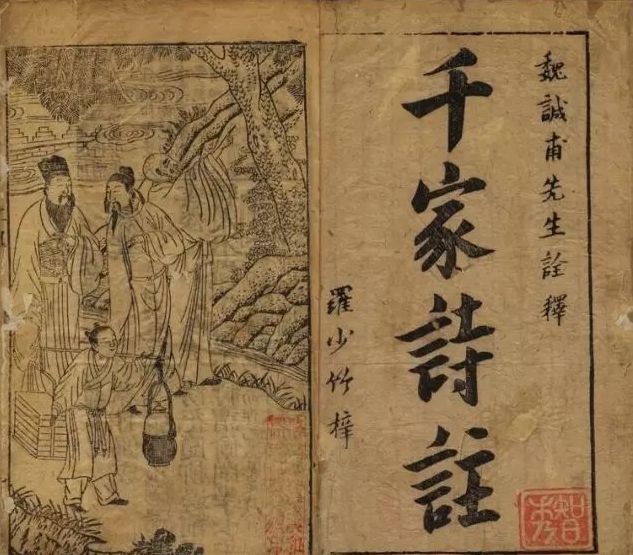 魏誠甫先生詮釋
千家詩註
羅少竹梓